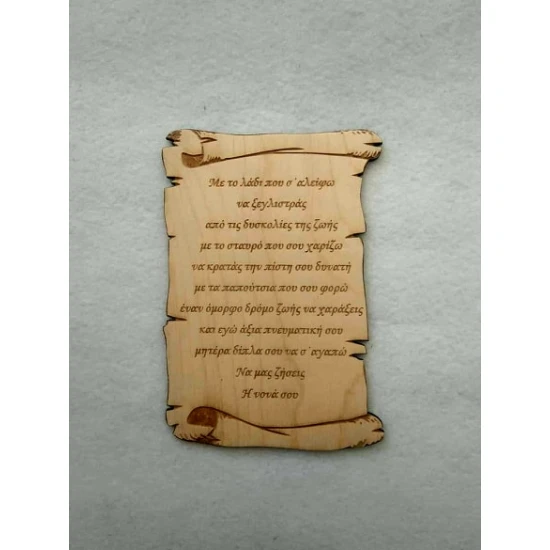 Με το λάδι που σ᾽αλείφω
να ξεγλιστράς
από τις δυσκολίες της ζωής
με το σταυρό που σου χαρίζω
να κρατάς την πίστη σου δυνατή
με τα παπούτσια που σου φορώ
έναν όμορφο δρόμο ζωής να χαράξεις
και εγώ άξια πνευματική σου
μητέρα δίπλα σου να σ᾽αγαπώ
Να μας ζήσεις
Η νονά σου